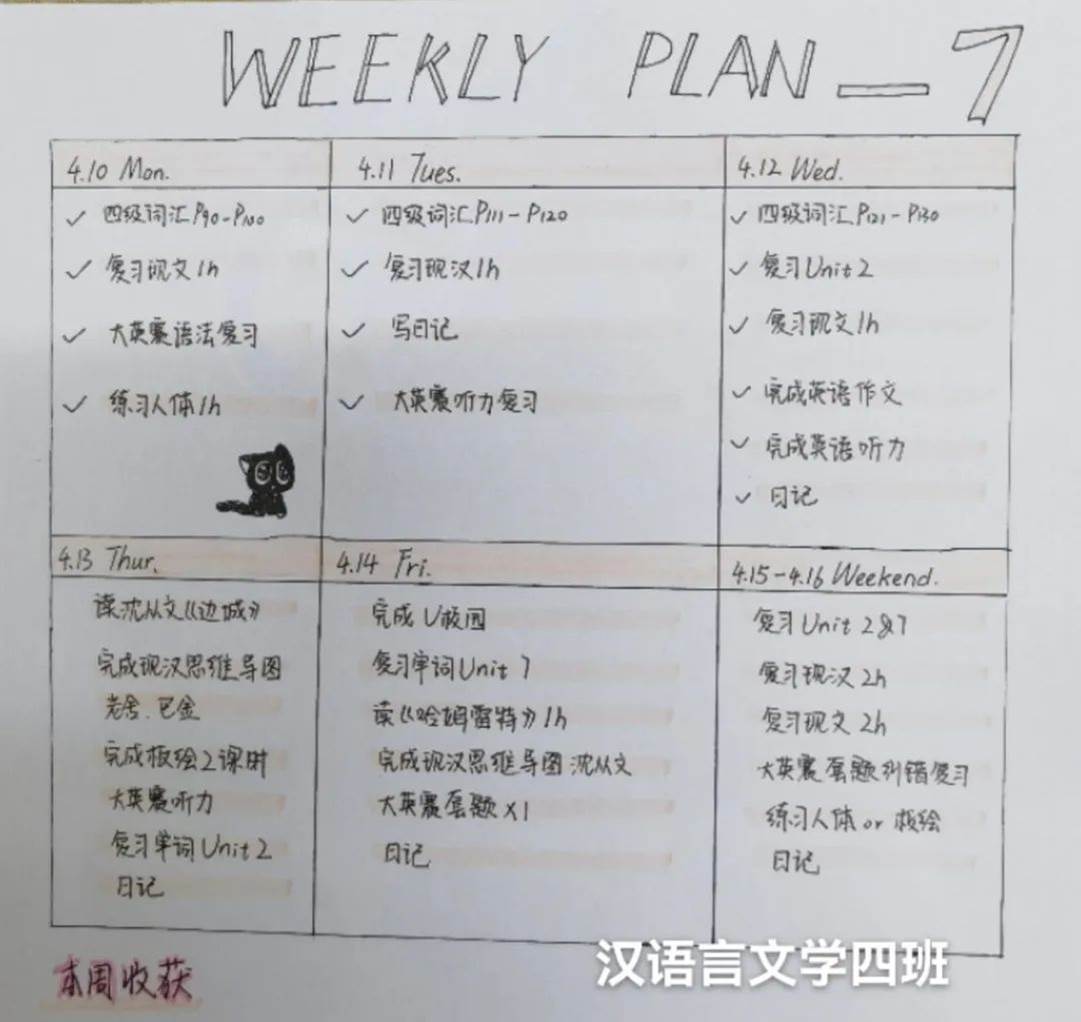 WEEKLY PLAN_7
4.10 Mon.
✓ 四级词汇P90-P100
✓ 复习现文1h
✓ 大英赛语法复习
✓ 练习人体1h
4.11 Tues.
✓ 四级词汇P111-P120
✓ 复习现汉1h
✓ 写日记
✓ 大英赛听力复习
4.12 Wed.
✓ 四级词汇P121-P130
✓ 复习Unit 2
✓ 复习现文1h
✓ 完成英语作文
✓ 完成英语听力
✓ 日记
4.13 Thur.
读沈从文《边城》
完成现汉思维导图
老舍.巴金
完成板绘2课时
大英赛听力
复习单词Unit 2
日记
4.14 Fri.
完成U校园
复习单词Unit 7
读《哈姆雷特》1h
完成现汉思维导图 沈从文
大英赛套题×1
日记
4.15-4.16 Weekend.
复习Unit 2&7
复习现汉 2h
复习现文 2h
大英赛套题纠错复习
练习人体 or 板绘
日记
本周收获
汉语言文学四班